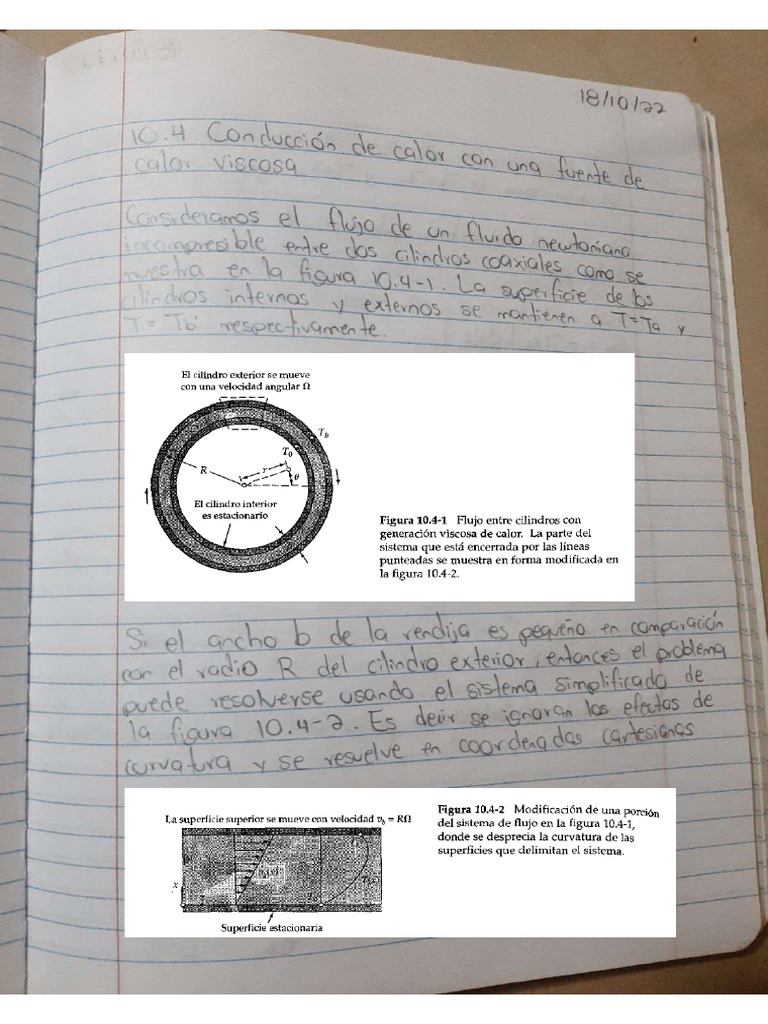 18/10/22
10.4 Conducción de calor con una fuente de
calor viscosa
Consideramos el flujo de un fluido newtoniano
incompresible entre dos cilindros coaxiales como se
muestra en la figura 10.4-1. La superficie de los
cilindros internos y externos se mantienen a T=Ta y
T= Tb respectivamente.
El cilindro exterior se mueve
con una velocidad angular Ω
T_b
T_0
R
r
θ
El cilindro interior
es estacionario
Figura 10.4-1 Flujo entre cilindros con
generación viscosa de calor. La parte del
sistema que está encerrada por las líneas
punteadas se muestra en forma modificada en
la figura 10.4-2.
Si el ancho b de la rendija es pequeño en comparación
con el radio R del cilindro exterior, entonces el problema
puede resolverse usando el sistema simplificado de
la figura 10.4-2. Es decir se ignoran los efectos de
curvatura y se resuelve en coordenadas cartesianas
La superficie superior se mueve con velocidad v_b = RΩ
x
z
Superficie estacionaria
Figura 10.4-2 Modificación de una porción
del sistema de flujo en la figura 10.4-1,
donde se desprecia la curvatura de las
superficies que delimitan el sistema.